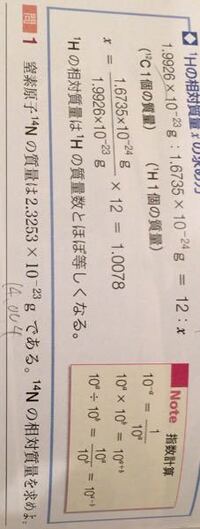 ◆ ¹Hの相対質量xの求め方
1.9926 × 10⁻²³ g : 1.6735 × 10⁻²⁴ g = 12 : x
(¹²C 1個の質量) (¹H 1個の質量)
x = 1.6735×10⁻²⁴ g / 1.9926×10⁻²³ g × 12 = 1.0078
¹Hの相対質量は¹Hの質量数とほぼ等しくなる。
Note 指数計算
10⁻ᵃ = 1/10ᵃ
10ᵃ × 10ᵇ = 10ᵃ⁺ᵇ
10ᵃ ÷ 10ᵇ = 10ᵃ/10ᵇ = 10ᵃ⁻ᵇ
問 1 窒素原子¹⁴Nの質量は2.3253 × 10⁻²³ g である。¹⁴Nの相対質量を求めよ。
14.004